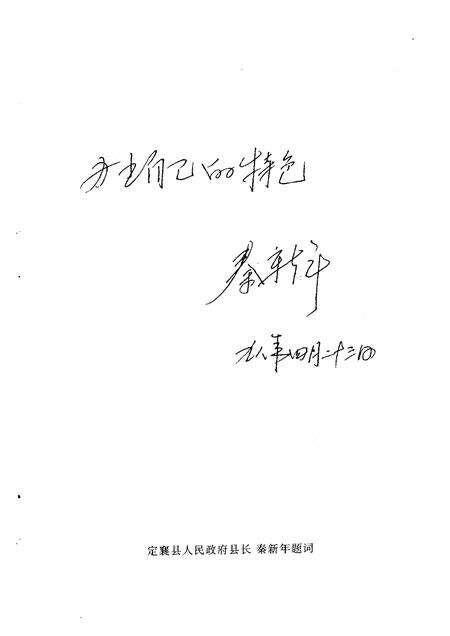 办出自己的特色
秦新年
九八年四月二十三日
定襄县人民政府县长 秦新年题词